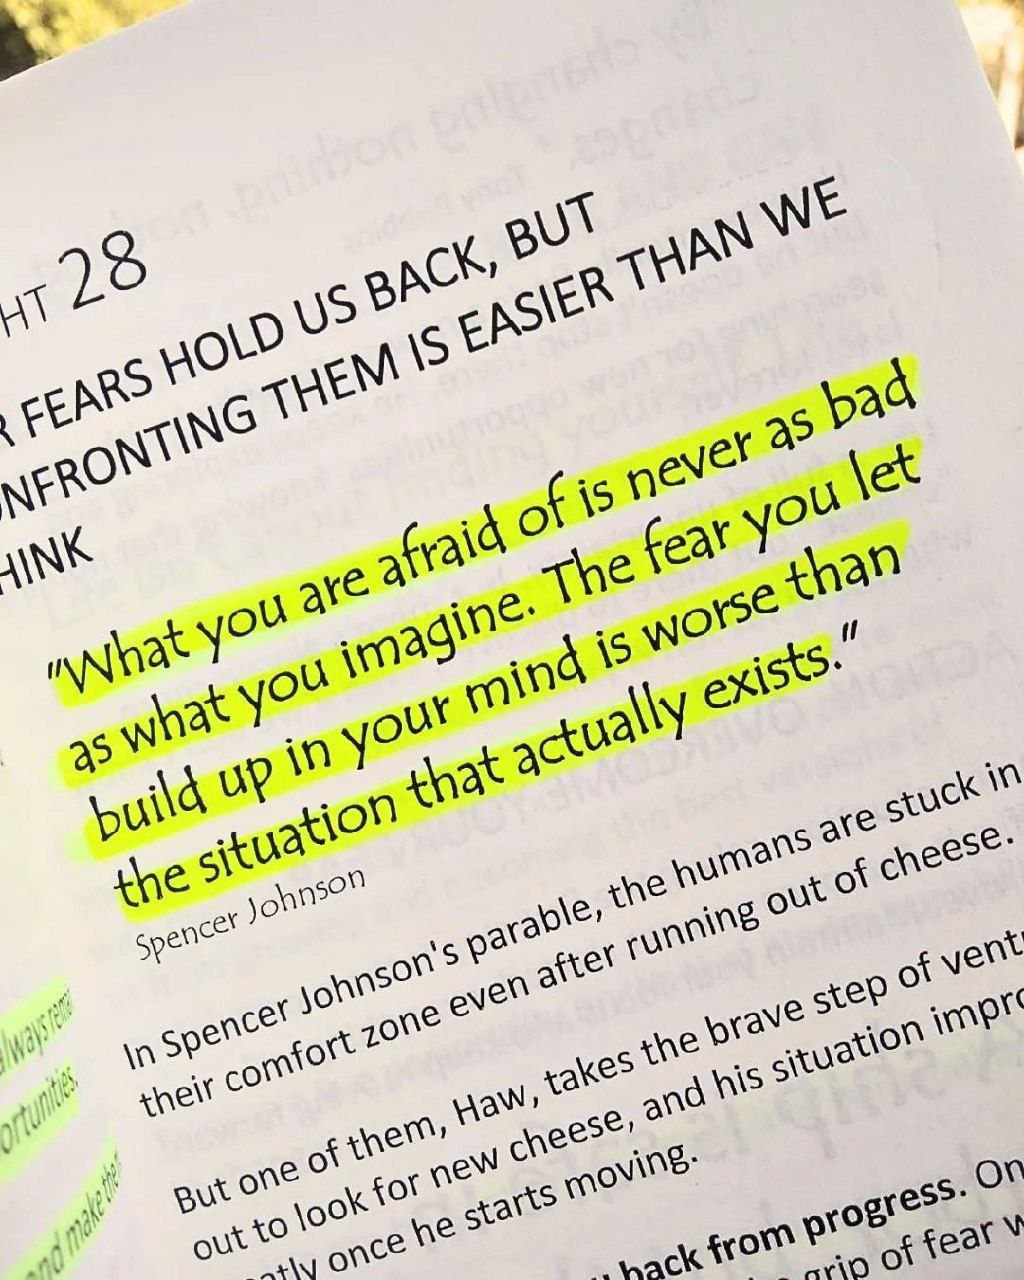 HT 28
R FEARS HOLD US BACK, BUT
ONFRONTING THEM IS EASIER THAN WE
HINK
"What you are afraid of is never as bad
as what you imagine. The fear you let
build up in your mind is worse than
the situation that actually exists."
Spencer Johnson
In Spencer Johnson's parable, the humans are stuck in
their comfort zone even after running out of cheese.
But one of them, Haw, takes the brave step of vent
out to look for new cheese, and his situation impro
ntly once he starts moving.
back from progress. On
grip of fear w
always rem
ortunities.
and make the